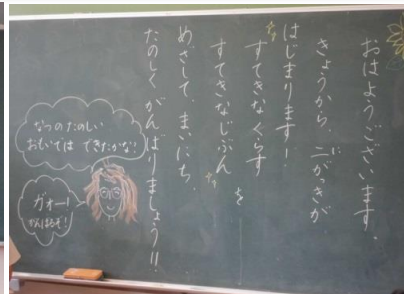 おはようございます。
きょうから、二がっきが
はじまります!
すてきなくらす
すてきなじぶん を
めざして、まいにち、
たのしく がんばりましょう!!
なつのたのしい
おもいでは できたかな?
ガォー!
がんばるぞ!